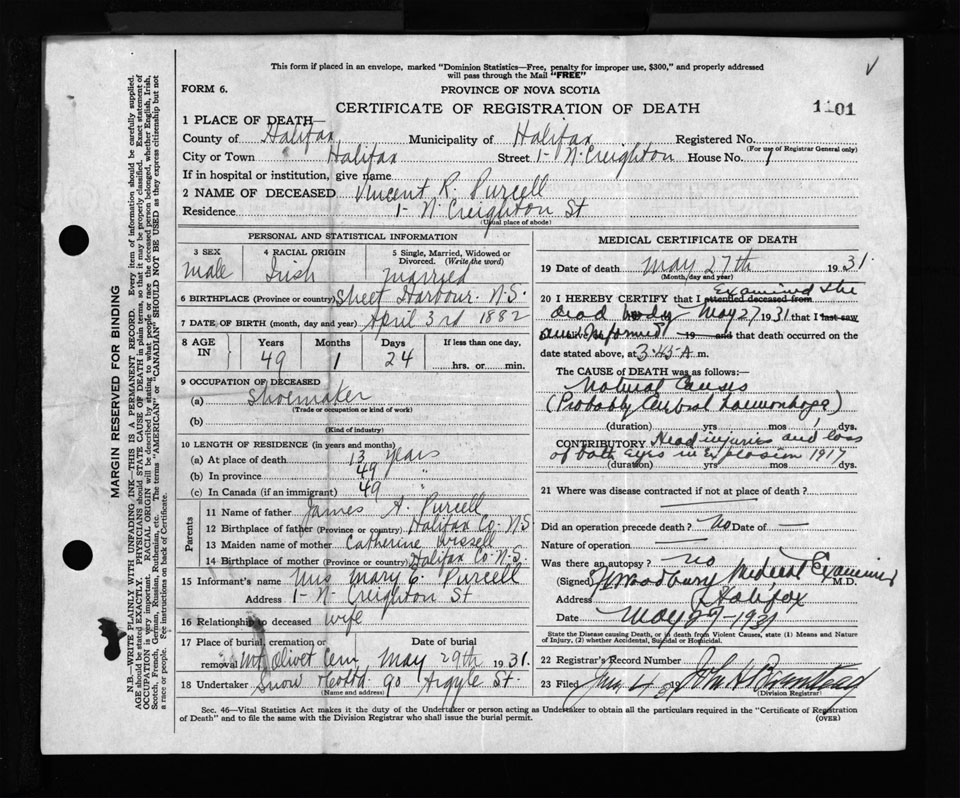 This form if placed in an envelope, marked "Dominion Statistics—Free, penalty for improper use, $300," and properly addressed
will pass through the Mail "FREE"
FORM 6.
PROVINCE OF NOVA SCOTIA
CERTIFICATE OF REGISTRATION OF DEATH
1101
1 PLACE OF DEATH—
County of Halifax Municipality of Halifax Registered No.
(For use of Registrar General only)
City or Town Halifax Street 1- N. Creighton House No. 1
If in hospital or institution, give name
2 NAME OF DECEASED Vincent R. Purcell
Residence 1- N Creighton St
(Usual place of abode)
PERSONAL AND STATISTICAL INFORMATION
3 SEX 4 RACIAL ORIGIN 5 Single, Married, Widowed or
Divorced. (Write the word)
male Irish married
6 BIRTHPLACE (Province or country) Sheet Harbour. N.S.
7 DATE OF BIRTH (month, day and year) April 3rd 1882
8 AGE IN Years Months Days If less than one day,
49 1 24 hrs. or min.
9 OCCUPATION OF DECEASED
(a) Shoemaker
(Trade or occupation or kind of work)
(b)
(Kind of industry)
10 LENGTH OF RESIDENCE (in years and months)
(a) At place of death 13 years
(b) In province 49 "
(c) In Canada (if an immigrant) 49 "
Parents
11 Name of father James A. Purcell
12 Birthplace of father (Province or country) Halifax Co. N.S
13 Maiden name of mother Catherine Wissell
14 Birthplace of mother (Province or country) Halifax Co N.S.
15 Informant's name Mrs Mary C. Purcell
Address 1- N- Creighton St
16 Relationship to deceased wife
17 Place of burial, cremation or Date of burial
removal Mt Olivet Cem May 29th 1931.
18 Undertaker Snow & Co Ltd. 90 Argyle St.
(Name and address)
MEDICAL CERTIFICATE OF DEATH
19 Date of death May 27th 1931.
(Month, day and year)
20 I HEREBY CERTIFY that I attended deceased from Examined the
dead body May 27 1931 that I last saw
19 and that death occurred on the
date stated above, at 3.45 A m.
The CAUSE OF DEATH was as follows:
Natural Causes
(Probably Cerebral haemorrhage)
(duration) yrs mos dys.
CONTRIBUTORY Head injuries and loss
of both eyes in Explosion 1917
(duration) yrs mos dys.
21 Where was disease contracted if not at place of death?
Did an operation precede death? No Date of —
Nature of operation —
Was there an autopsy? no
(Signed) Woodbury Medical Examiner M.D.
Address Halifax
Date May 27-1931
State the Disease causing Death, or in death from Violent Causes, state (1) Means and Nature
of Injury, (2) whether Accidental, Suicidal or Homicidal.
22 Registrar's Record Number
23 Filed 4 19 John H Barnstead
(Division Registrar)
Sec. 46—Vital Statistics Act makes it the duty of the Undertaker or person acting as Undertaker to obtain all the particulars required in the "Certificate of Registration
of Death" and to file the same with the Division Registrar who shall issue the burial permit.
(OVER)
MARGIN RESERVED FOR BINDING
N.B.—WRITE PLAINLY WITH UNFADING INK—THIS IS A PERMANENT RECORD. Every item of information should be carefully supplied.
AGE should be stated EXACTLY. PHYSICIANS should STATE CAUSE OF DEATH in plain terms, so that it may be properly classified. Exact statement of
OCCUPATION is very important. RACIAL ORIGIN will be described by stating to what people or race the deceased person belonged, whether English, Irish,
Scotch, French, German, Russian, Ruthenian, etc. The terms "AMERICAN" or "CANADIAN" SHOULD NOT BE USED as they express citizenship but not
a race or people. See instructions on back of Certificate.